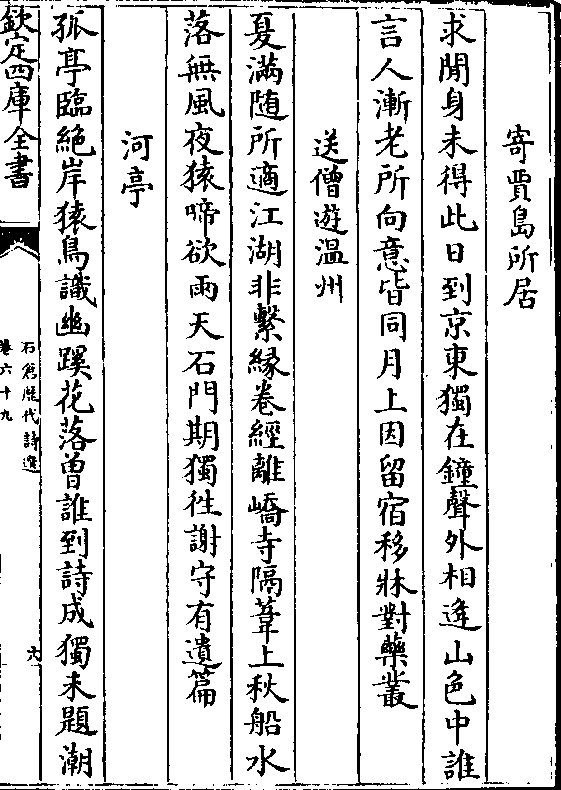 寄賈島所居
求閒身未得此日到京東獨在鐘聲外相逢山色中誰
言人漸老所向意皆同月上因留宿移牀對藥叢
送僧遊温州
夏滿随所適江湖非繫緣卷經離嶠寺隔葦上秋船水
落無風夜猿啼欲雨天石門期獨徃謝守有遺篇
河亭
孤亭臨絶岸猿鳥識幽蹊花落曽誰到詩成獨未題潮
欽定四庫全書
石倉歷代詩選
卷六十九
六